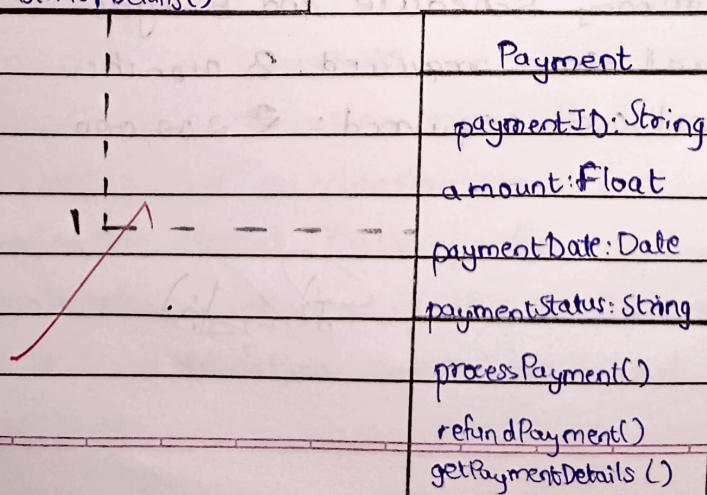 Payment
paymentID: String
amount: Float
1
paymentDate: Date
paymentStatus: String
processPayment()
refundPayment()
getPaymentDetails ()